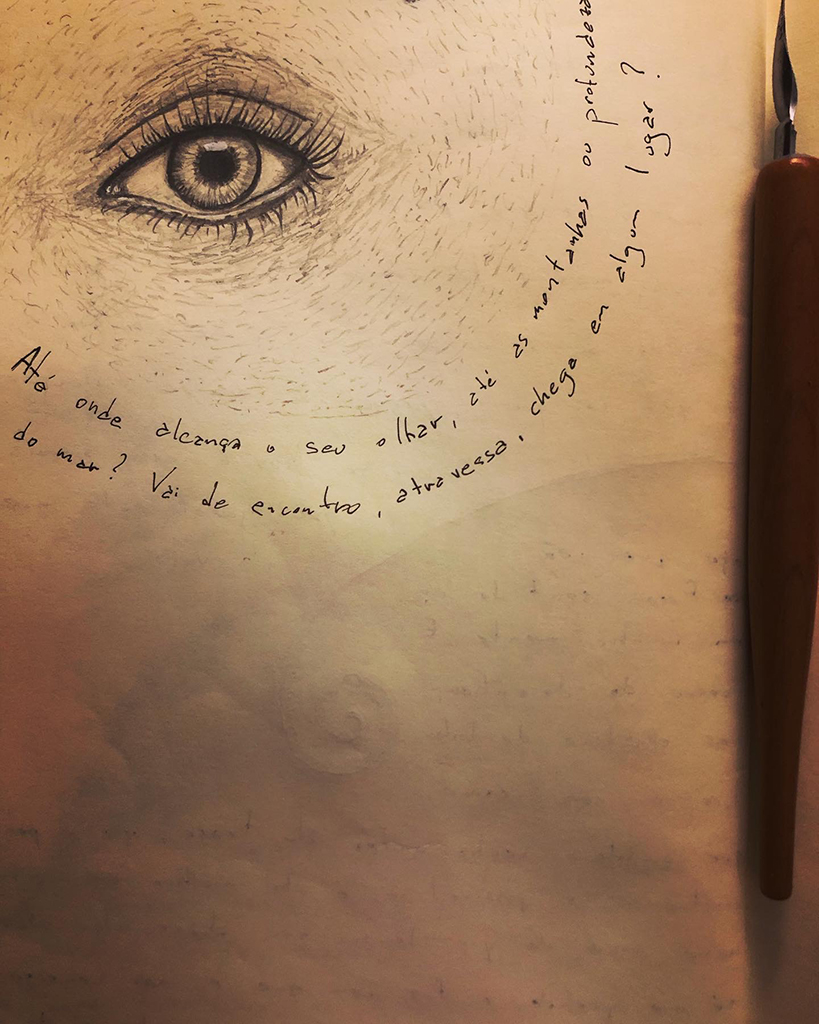 Até onde alcança o seu olhar, até as montanhas ou profundeza
do mar? Vai de encontro, atravessa, chega em algum lugar?